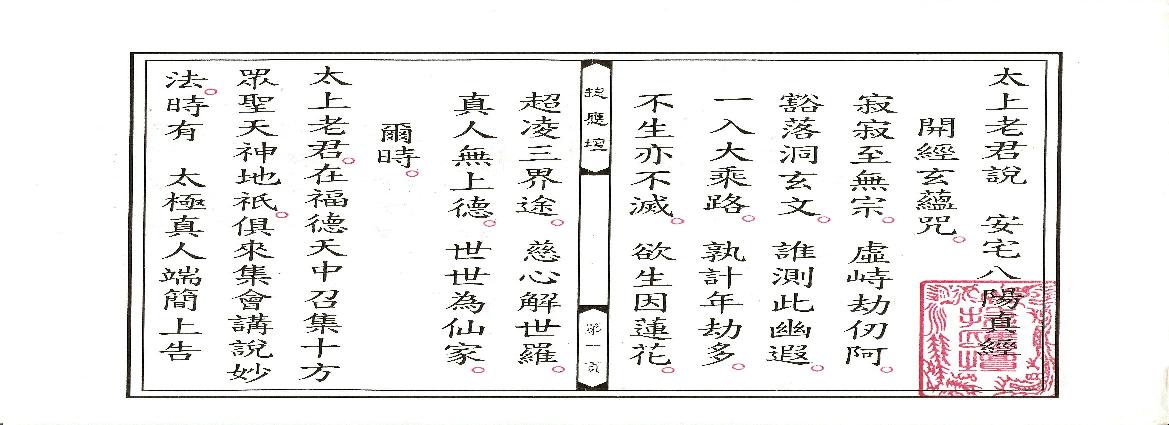 太上老君說　安宅八陽真經
開經玄蘊咒。
寂寂至無宗。虛峙劫仞阿。
豁落洞玄文。誰測此幽遐。
一入大乘路。孰計年劫多。
不生亦不滅。欲生因蓮花。
應壇
第一頁
超凌三界途。慈心解世羅。
真人無上德。世世為仙家。
爾時。
太上老君。在福德天中召集十方
眾聖天神地祇。俱來集會講說妙
法。時有　太極真人端簡上告